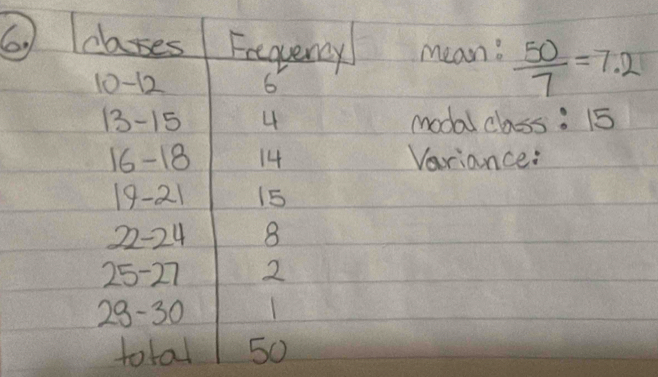 6. classes Frequency mean: 50/7 = 7.2
10-12 6
13-15 4 modal class: 15
16-18 14 Variance:
19-21 15
22-24 8
25-27 2
28-30 1
total 50